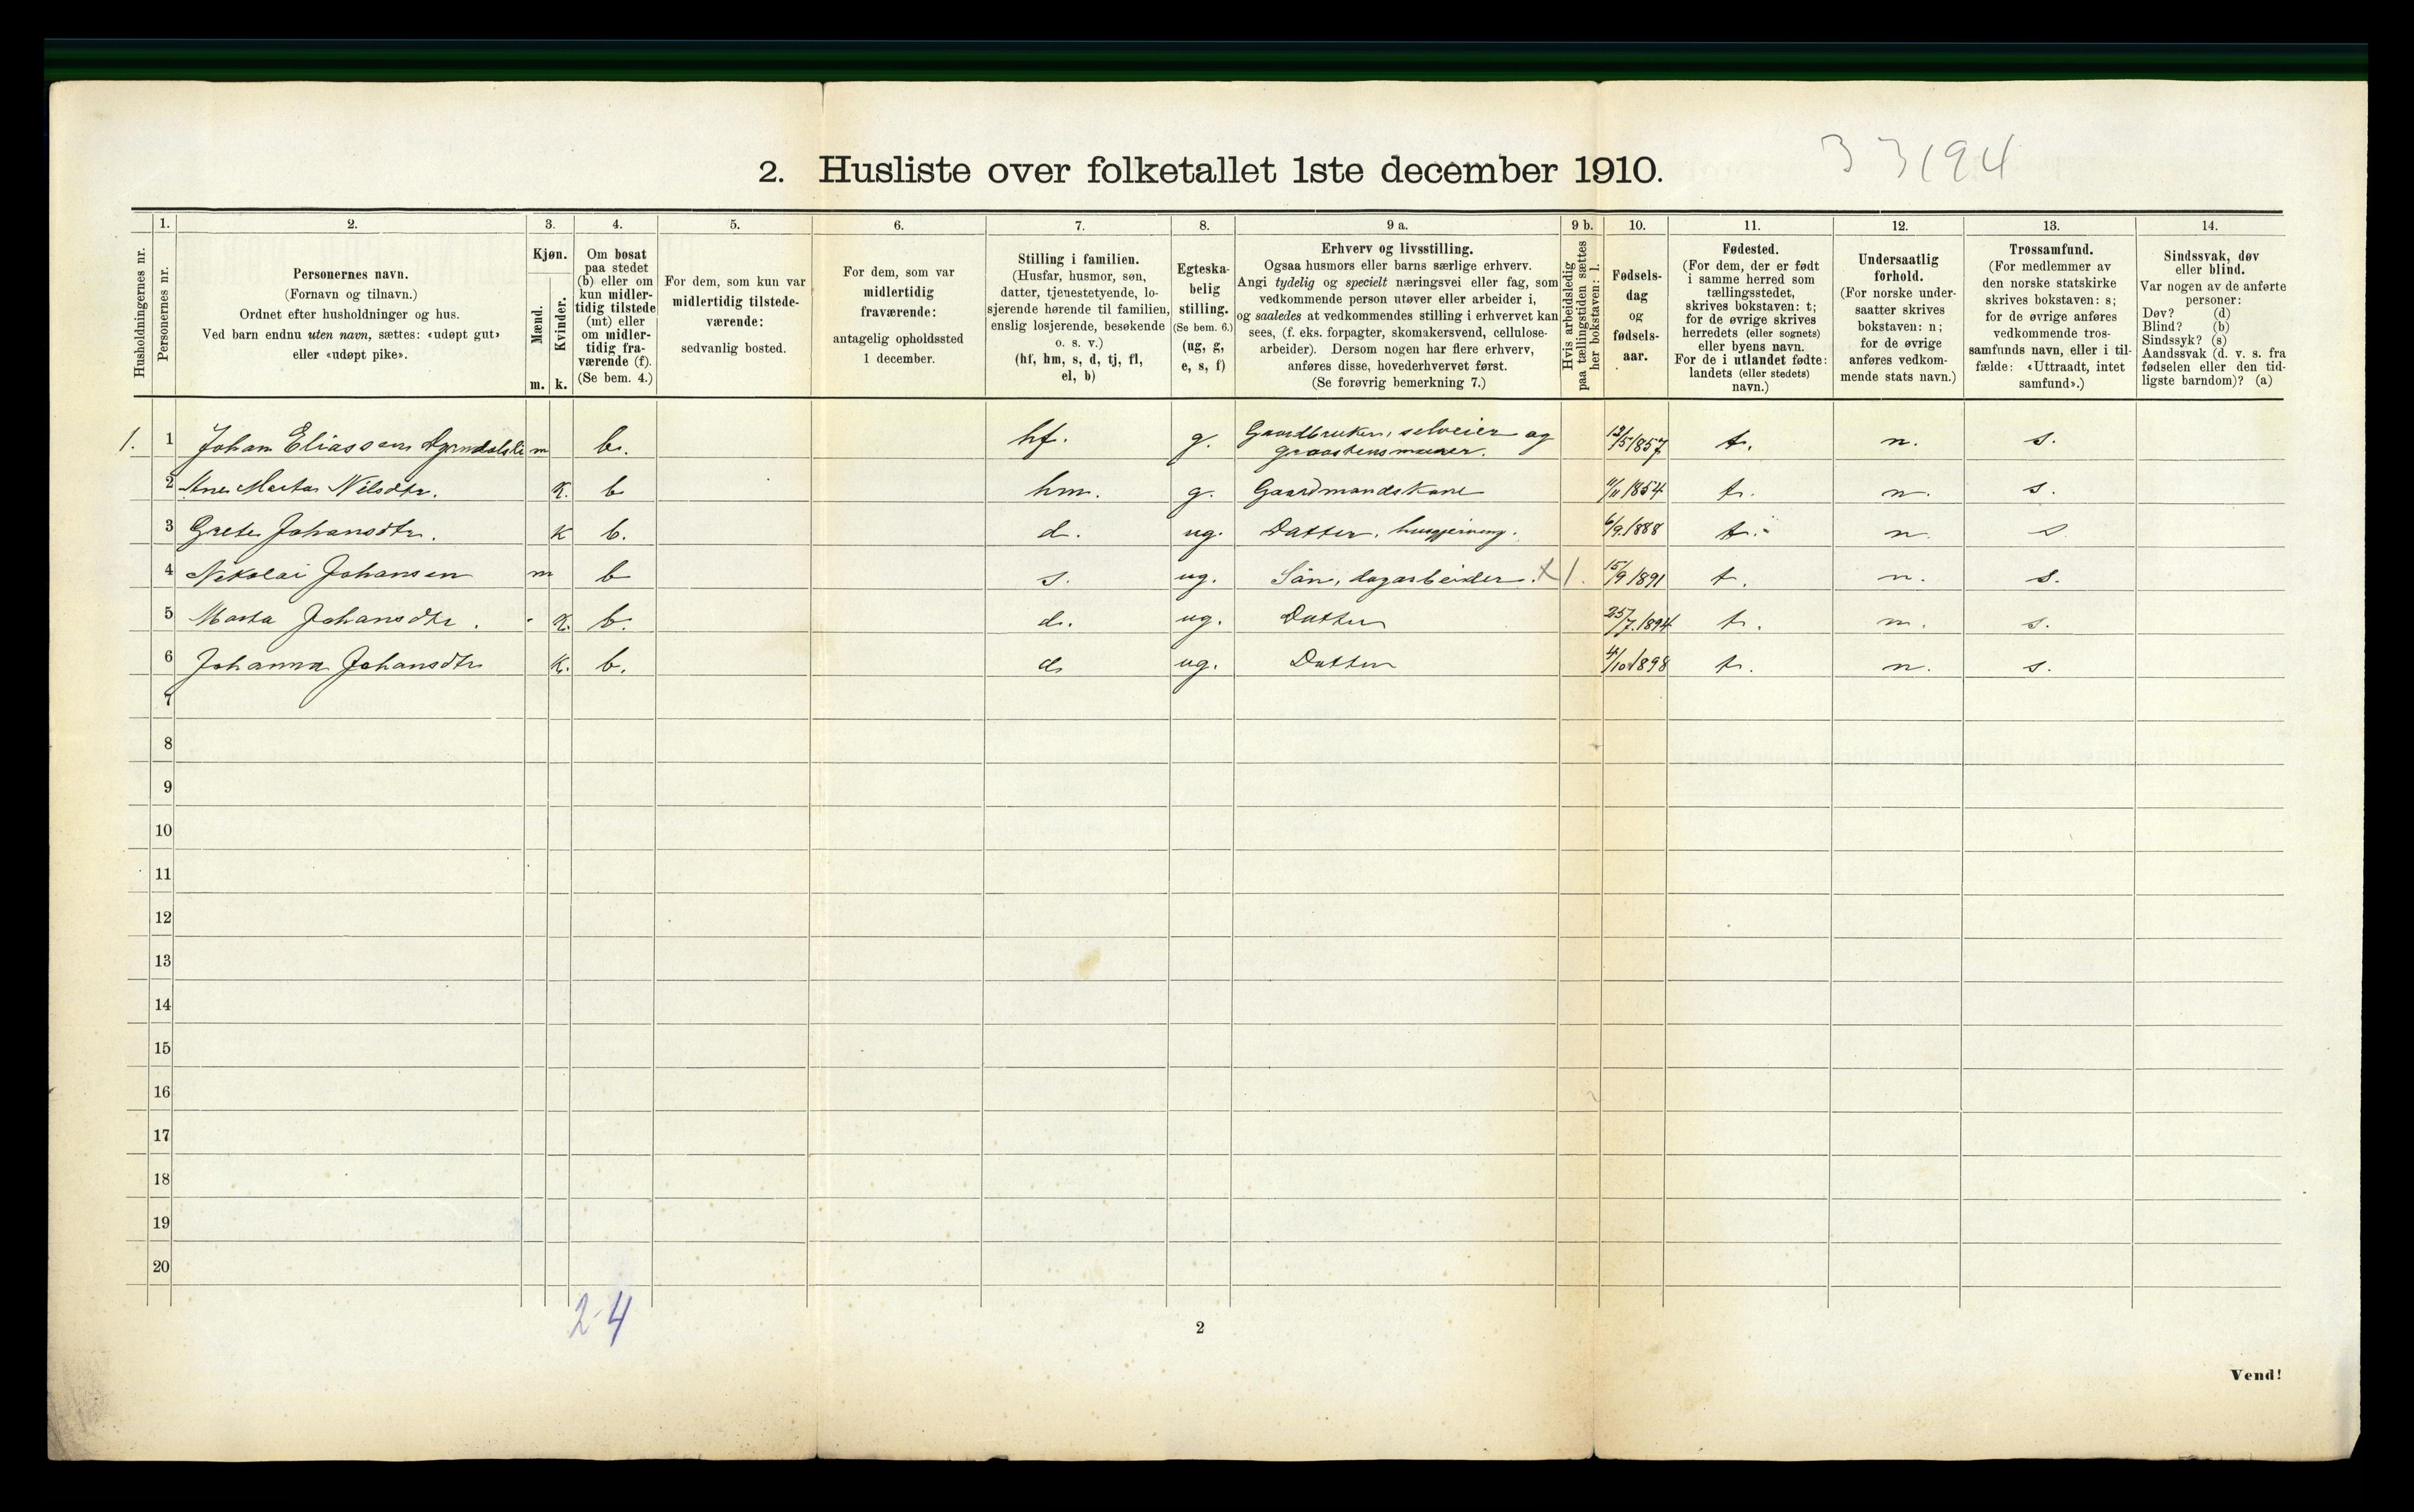 33194
2. Husliste over folketallet 1ste december 1910.
Husholdningernes nr.
1.
Personernes nr.
2.
Personernes navn.
(Fornavn og tilnavn.)
Ordnet efter husholdninger og hus.
Ved barn endnu uten navn, sættes: «udøpt gut»
eller «udøpt pike».
3.
Kjøn.
Mænd.
m.
Kvinder.
k.
4.
Om bosat
paa stedet
(b) eller om
kun midler-
tidig tilstede
(mt) eller
om midler-
tidig fra-
værende (f).
(Se bem. 4.)
5.
For dem, som kun var
midlertidig tilstede-
værende:
sedvanlig bosted.
6.
For dem, som var
midlertidig
fraværende:
antagelig opholdssted
1 december.
7.
Stilling i familien.
(Husfar, husmor, søn,
datter, tjenestetyende, lo-
sjerende hørende til familien,
enslig losjerende, besøkende
o. s. v.)
(hf, hm, s, d, tj, fl,
el, b)
8.
Egteska-
belig
stilling.
(Se bem. 6.)
(ug, g,
e, s, f)
9 a.
Erhverv og livsstilling.
Ogsaa husmors eller barns særlige erhverv.
Angi tydelig og specielt næringsvei eller fag, som
vedkommende person utøver eller arbeider i,
og saaledes at vedkommendes stilling i erhvervet kan
sees, (f. eks. forpagter, skomakersvend, cellulose-
arbeider). Dersom nogen har flere erhverv,
anføres disse, hovederhvervet først.
(Se forøvrig bemerkning 7.)
9 b.
Hvis arbeidsledig
paa tællingstiden sættes
her bokstaven: l.
10.
Fødsels-
dag
og
fødsels-
aar.
11.
Fødested.
(For dem, der er født
i samme herred som
tællingsstedet,
skrives bokstaven: t;
for de øvrige skrives
herredets (eller sognets)
eller byens navn.
For de i utlandet fødte:
landets (eller stedets)
navn.)
12.
Undersaatlig
forhold.
(For norske under-
saatter skrives
bokstaven: n;
for de øvrige
anføres vedkom-
mende stats navn.)
13.
Trossamfund.
(For medlemmer av
den norske statskirke
skrives bokstaven: s;
for de øvrige anføres
vedkommende tros-
samfunds navn, eller i til-
fælde: «Uttraadt, intet
samfund».)
14.
Sindssvak, døv
eller blind.
Var nogen av de anførte
personer:
Døv? (d)
Blind? (b)
Sindssyk? (s)
Aandssvak (d. v. s. fra
fødselen eller den tid-
ligste barndom)? (a)
1. 1 Johan Eliassen m b. hf. g. Gaardbruker, selveier og graastensmurer. t. n. s.
2 Ane Marta Nilsdtr. K. b hm. g. Gaardmandskone 11/11 1854 t. n. s.
3 Grete Johansdtr. K b. d. ug. Datter, husgjerning. 6/9.1888 t. n. s
4 Nikolai Johansen m b s. ug. Sön, dagarbeider. X l. 15/9 1891 t. n. s.
5 Marta Johansdtr. K. b. d. ug. Datter 25/7.1894 t. n. s.
6 Johanna Johansdtr K. b. d ug. Datter 4/10 1898 t. n. s.
7
8
9
10
11
12
13
14
15
16
17
18
19
20
2-4
2
Vend!